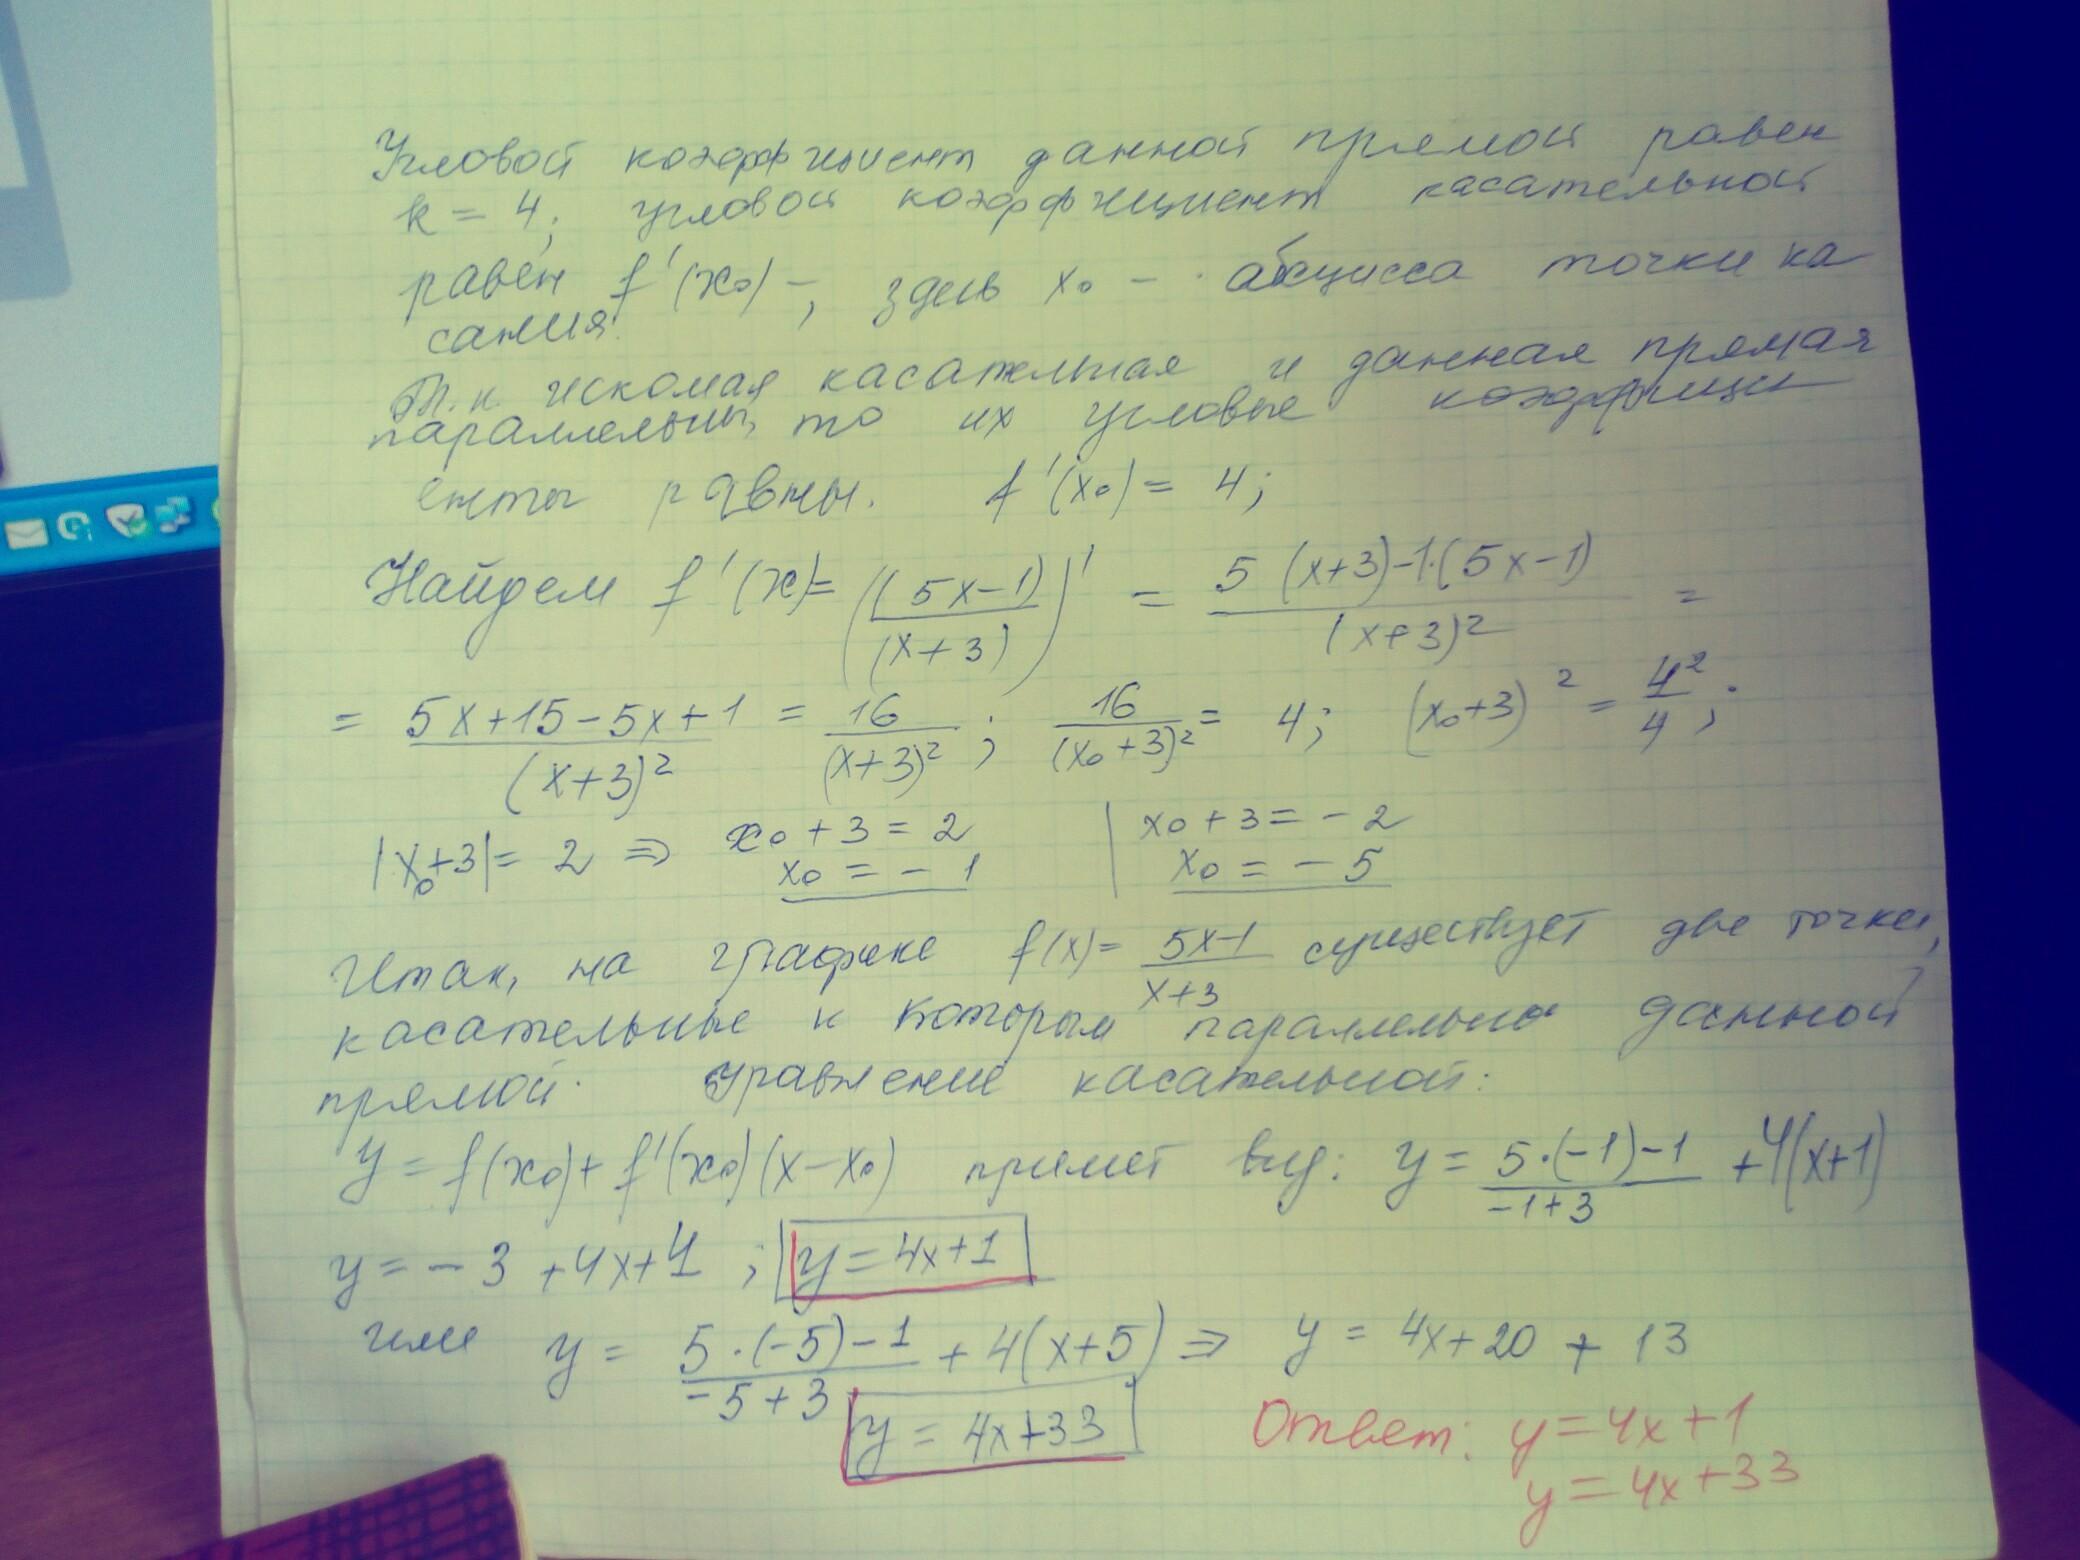 Угловой коэффициент данной прямой равен
k = 4; угловой коэффициент касательной
равен f'(x₀) –, здесь x₀ – абсцисса точки ка
сания.
Т.к. искомая касательная и данная прямая
параллельны, то их угловые коэффици
енты равны. f'(x₀) = 4;
Найдем f'(x) = ((5x-1)/(x+3))' = (5(x+3)-1·(5x-1))/(x+3)² =
= (5x+15-5x+1)/(x+3)² = 16/(x+3)²; 16/(x₀+3)² = 4; (x₀+3)² = 4²/4;
|x₀+3| = 2 ⇒ x₀+3 = 2 | x₀+3 = -2
x₀ = -1 | x₀ = -5
Итак, на графике f(x) = (5x-1)/(x+3) существует две точки,
касательные к которым параллельны данной
прямой. Уравнение касательной:
y = f(x₀) + f'(x₀)(x-x₀) примет вид: y = (5·(-1)-1)/(-1+3) + 4(x+1)
y = -3 + 4x + 4; y = 4x+1
или y = (5·(-5)-1)/(-5+3) + 4(x+5) ⇒ y = 4x+20 + 13
y = 4x+33
Ответ: y = 4x+1
y = 4x+33